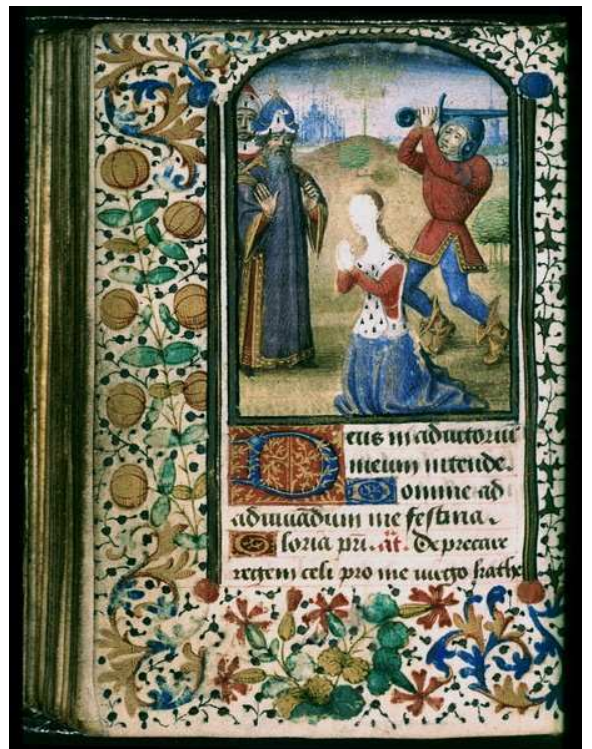 Deus in adiutoriũ
meum intende.
Domine ad
adiuuãdum me festina.
Gloria pr̃i. añ. Deprecare
regem celi pro me uirgo kathe